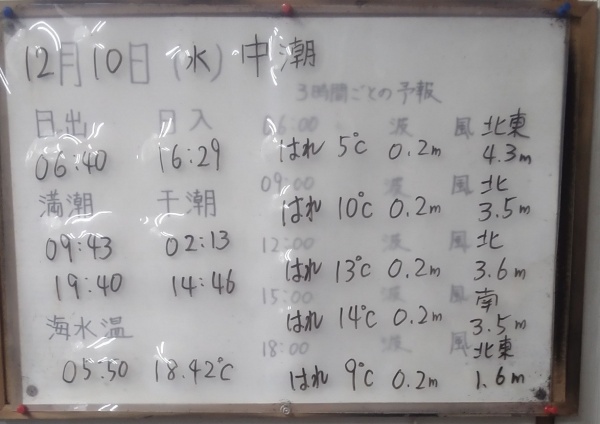 12月10日(水) 中潮
日出 日入
06:40 16:29
満潮 干潮
09:43 02:13
19:40 14:46
海水温
05:50 18.42℃
3時間ごとの予報
06:00 波 風 北東
はれ 5℃ 0.2m 4.3m
09:00 波 風 北
はれ 10℃ 0.2m 3.5m
12:00 波 風 北
はれ 13℃ 0.2m 3.6m
15:00 波 風 南
はれ 14℃ 0.2m 3.5m
18:00 波 風 北東
はれ 9℃ 0.2m 1.6m